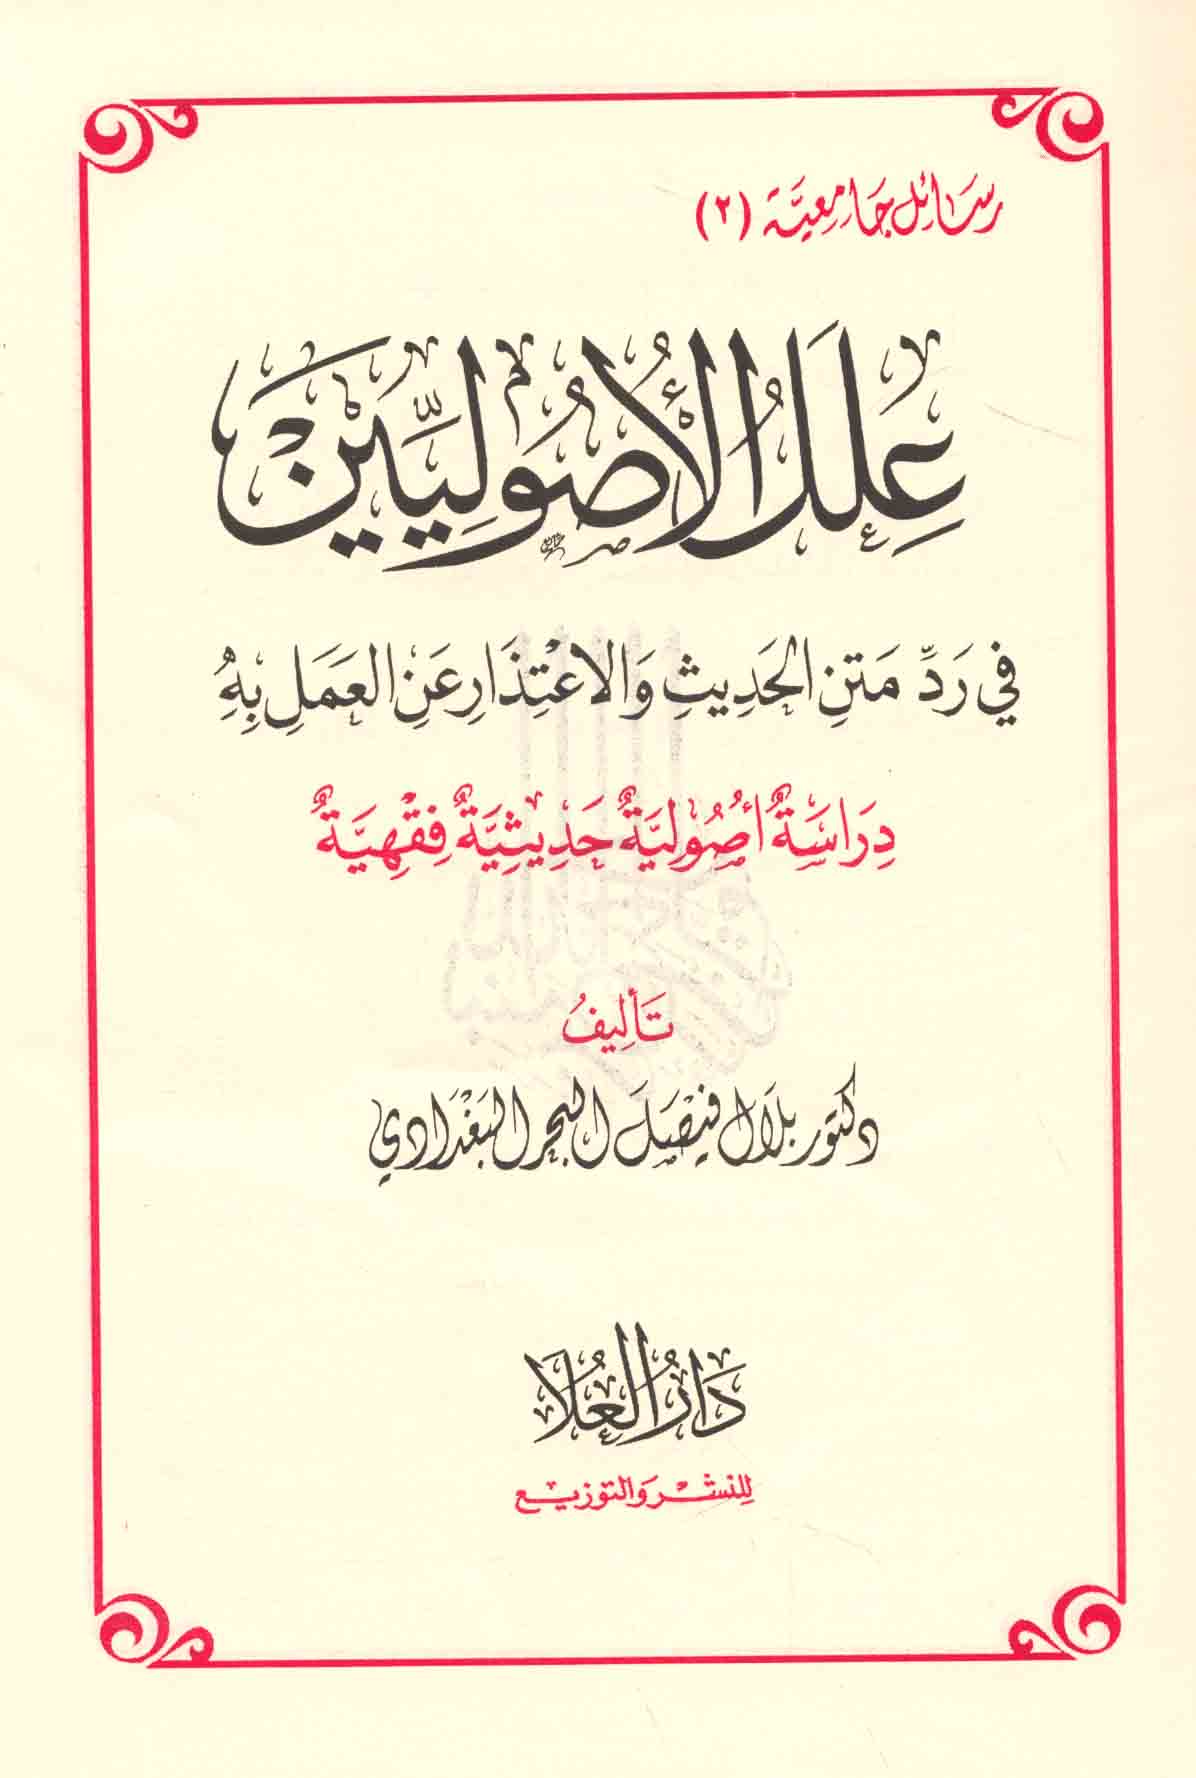 رسائل جامعية (٢)
عِلَلُ الأُصُولِيِّينَ
في رَدِّ مَتنِ الحَدِيثِ وَالاعْتِذَارِ عَنِ العَمَلِ بِهِ
دِرَاسَةٌ أُصُولِيَّةٌ حَدِيثِيَّةٌ فِقْهِيَّةٌ
تَأليفُ
دكتور بلال فيصل البحر البغدادي
دَارُ العُلَا
للنشر والتوزيع